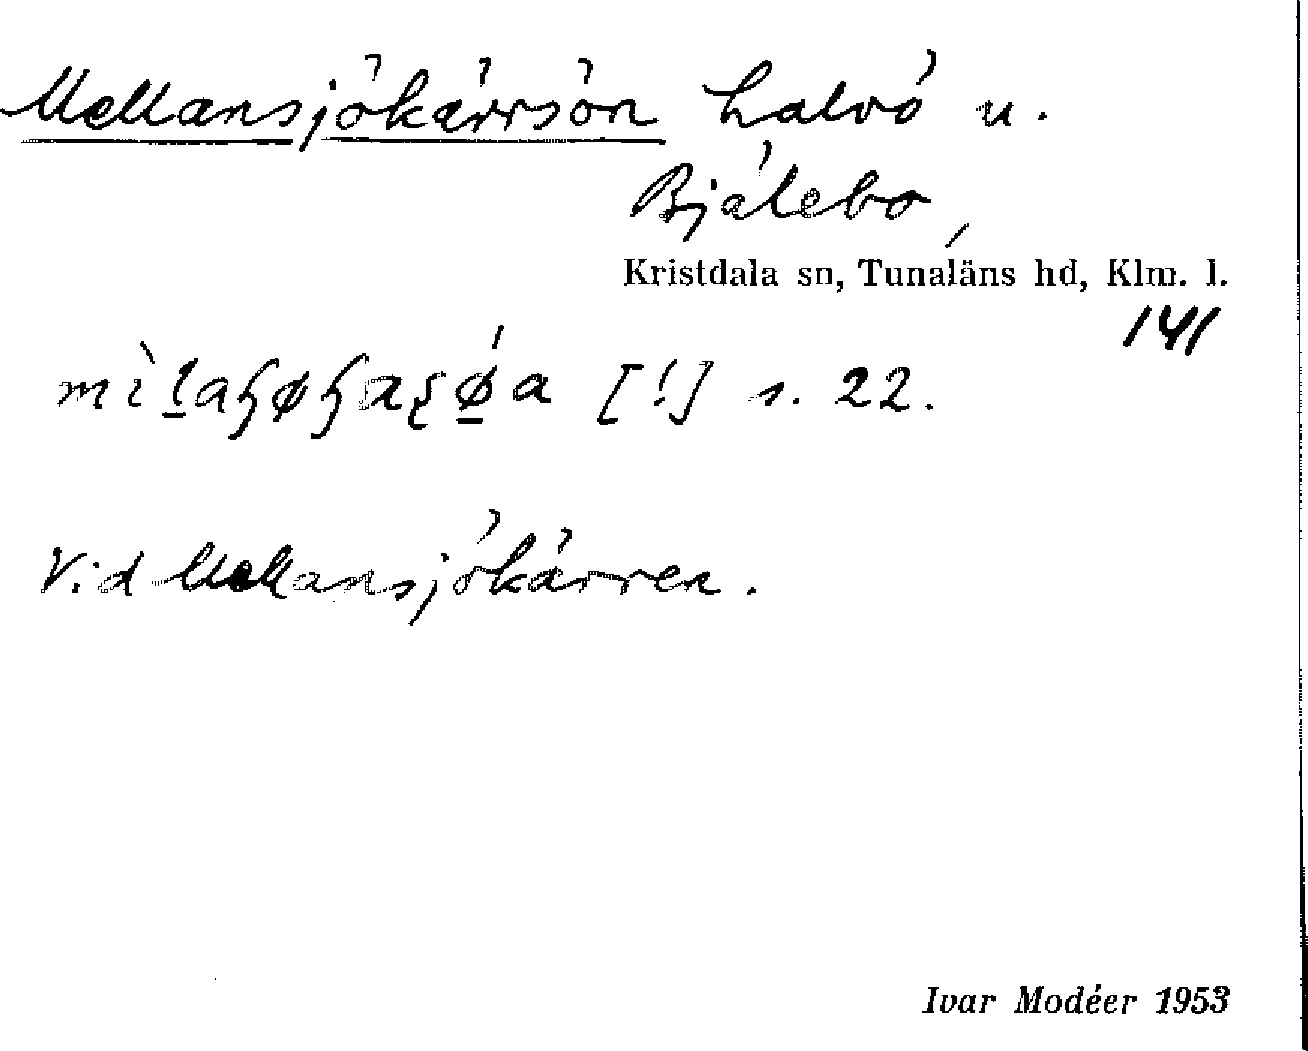 Mellansjökärrsön halvö u.
Bjälebo,
Kristdala sn, Tunaläns hd, Klm. l.
141
[!] s. 22.
Vid Mellansjökärren.
Ivar Modéer 1953